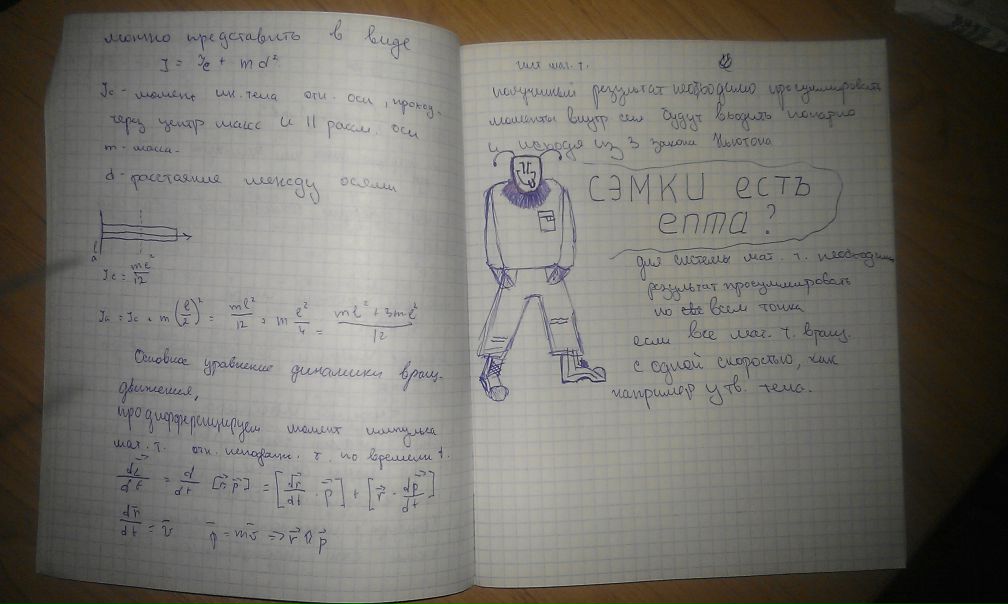 можно представить в виде
J = Jc + md²
Jc - момент ин. тела отн. оси, проход.
через центр масс и || рассм. оси
m - масса.
d - расстояние между осями
Jc = ml²/12
Ja = Jc + m(l/2)² = ml²/12 + m l²/4 = (ml² + 3ml²)/12
Основное уравнение динамики вращ.
движения,
продифференцируем момент импульса
мат. т. отн. неподвиж. т. по времени t.
dL/dt = d/dt [r p] = [dr/dt · p] + [r · dp/dt]
dr/dt = v p = mv =>
мат. т.
полученный результат необходимо просуммировать
моменты внутр сил будут входить попарно
и исходя из 3 закона Ньютона
СЭМКИ есть
епта?
для системы мат. т. необходимо
результат просуммировать
по всем точка
если все мат. т. вращ.
с одной скоростью, как
например у тв. тела.